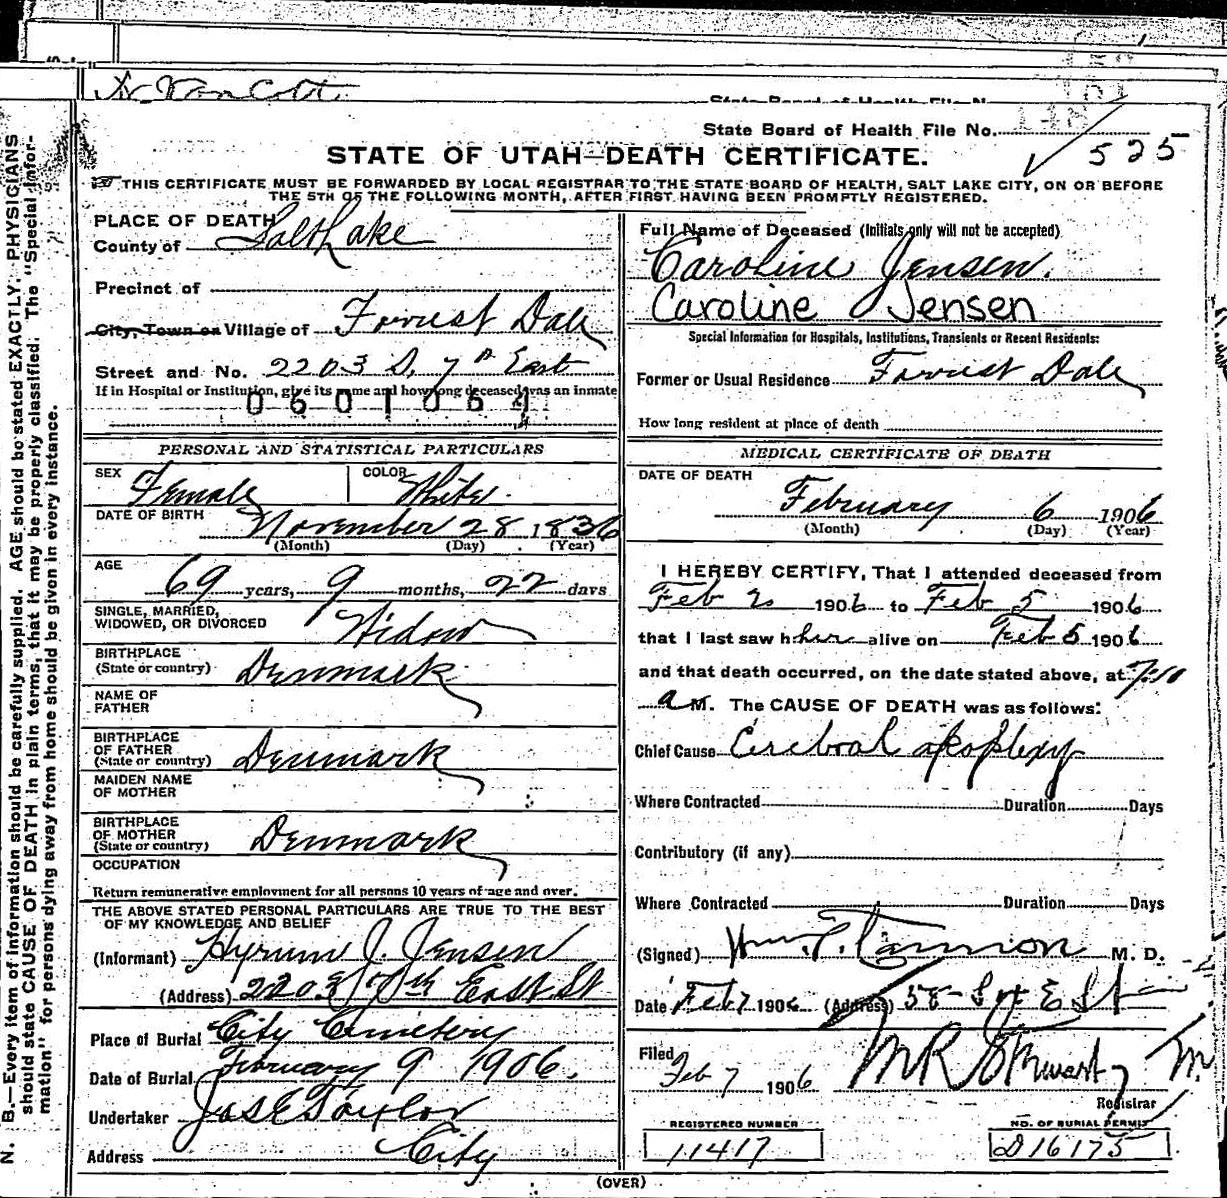 State Board of Health File No.
State Board of Health File No. 525
STATE OF UTAH—DEATH CERTIFICATE.
THIS CERTIFICATE MUST BE FORWARDED BY LOCAL REGISTRAR TO THE STATE BOARD OF HEALTH, SALT LAKE CITY, ON OR BEFORE
THE 5TH OF THE FOLLOWING MONTH, AFTER FIRST HAVING BEEN PROMPTLY REGISTERED.
PLACE OF DEATH
County of Salt Lake
Precinct of
City, Town or Village of Forrest Dale
Street and No. 2203 S. 7th East
If in Hospital or Institution, give its name and how long deceased was an inmate
0601061
PERSONAL AND STATISTICAL PARTICULARS
SEX Female COLOR White.
DATE OF BIRTH November 28 1836
(Month) (Day) (Year)
AGE
69 years, 9 months, 22 days
SINGLE, MARRIED,
WIDOWED, OR DIVORCED Widow
BIRTHPLACE
(State or country) Denmark
NAME OF
FATHER
BIRTHPLACE
OF FATHER
(State or country) Denmark
MAIDEN NAME
OF MOTHER
BIRTHPLACE
OF MOTHER
(State or country) Denmark
OCCUPATION
Return remunerative employment for all persons 10 years of age and over.
THE ABOVE STATED PERSONAL PARTICULARS ARE TRUE TO THE BEST
OF MY KNOWLEDGE AND BELIEF
(Informant) Hyrum J. Jensen
(Address) 2203 7th East St
Place of Burial City Cemetery
Date of Burial February 9 1906.
Undertaker Jos E Taylor
Address City
Full Name of Deceased (Initials only will not be accepted)
Caroline Jensen.
Caroline Jensen
Special Information for Hospitals, Institutions, Transients or Recent Residents:
Former or Usual Residence Forrest Dale
How long resident at place of death
MEDICAL CERTIFICATE OF DEATH
DATE OF DEATH
February 6 1906
(Month) (Day) (Year)
I HEREBY CERTIFY, That I attended deceased from
Feb 2 1906 to Feb 5 1906
that I last saw her alive on Feb 5 1906
and that death occurred, on the date stated above, at 7:10
a M. The CAUSE OF DEATH was as follows:
Chief Cause Cerebral apoplexy
Where Contracted Duration Days
Contributory (if any)
Where Contracted Duration Days
(Signed) Wm. T. Cannon M. D.
Date Feb 7 1906 (Address) 58 - E St
Filed
Feb 7 1906 M R Stewart
Registrar
REGISTERED NUMBER
11417
NO. OF BURIAL PERMIT
D16175
(OVER)
N. B.—Every item of information should be carefully supplied. AGE should be stated EXACTLY. PHYSICIANS
should state CAUSE OF DEATH in plain terms, that it may be properly classified. The "Special Infor-
mation" for persons dying away from home should be given in every instance.